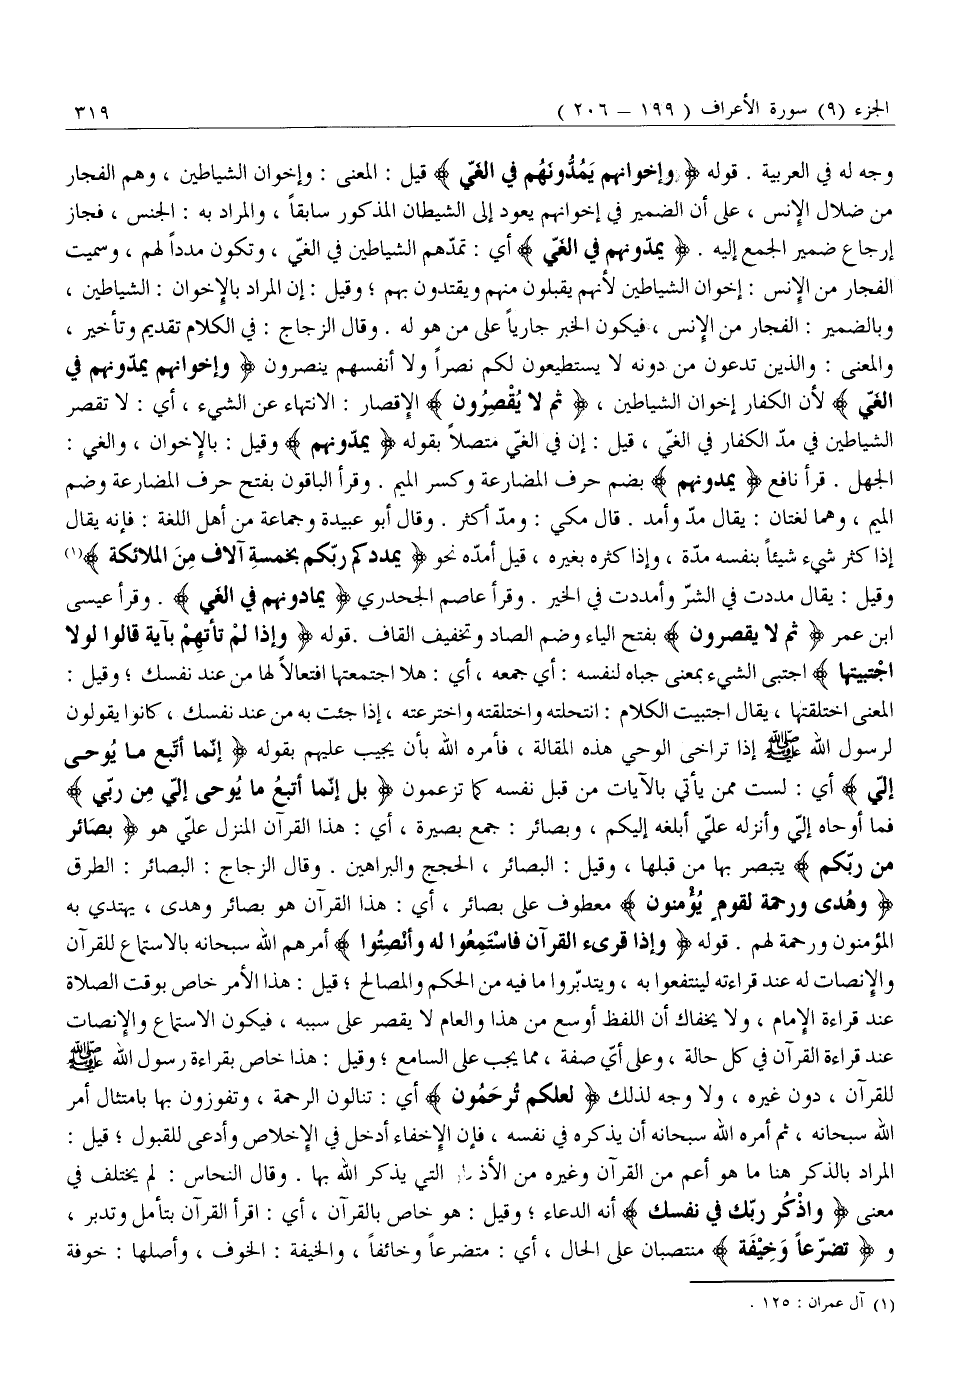 الجزء (٩) سورة الأعراف ( ١٩٩ – ٢٠٦ ) ٣١٩
وجه له في العربية . قوله ﴿ وإخوانهم يَمُدُّونَهُم في الغَيّ ﴾ قيل : المعنى : وإخوان الشياطين ، وهم الفجار
من ضلال الإنس ، على أن الضمير في إخوانهم يعود إلى الشيطان المذكور سابقاً ، والمراد به : الجنس ، فجاز
إرجاع ضمير الجمع إليه . ﴿ يمدّونهم في الغَيّ ﴾ أي : تمدّهم الشياطين في الغيّ ، وتكون مدداً لهم ، وسميت
الفجار من الإنس : إخوان الشياطين لأنهم يقبلون منهم ويقتدون بهم ؛ وقيل : إن المراد بالإخوان : الشياطين ،
وبالضمير : الفجار من الإنس ، فيكون الخبر جارياً على من هو له . وقال الزجاج : في الكلام تقديم وتأخير ،
والمعنى : والذين تدعون من دونه لا يستطيعون لكم نصراً ولا أنفسهم ينصرون ﴿ وإخوانهم يمدّونهم في
الغَيّ ﴾ لأن الكفار إخوان الشياطين ، ﴿ ثم لا يُقْصِرُون ﴾ الإقصار : الانتهاء عن الشيء ، أي : لا تقصر
الشياطين في مدّ الكفار في الغيّ ، قيل : إن في الغيّ متصلاً بقوله ﴿ يمدّونهم ﴾ وقيل : بالإخوان ، والغي :
الجهل . قرأ نافع ﴿ يمدونهم ﴾ بضم حرف المضارعة وكسر الميم . وقرأ الباقون بفتح حرف المضارعة وضم
الميم ، وهما لغتان : يقال مدّ وأمد . قال مكي : ومدّ أكثر . وقال أبو عبيدة وجماعة من أهل اللغة : فإنه يقال
إذا كثر شيء شيئاً بنفسه مدّة ، وإذا كثره بغيره ، قيل أمدّه نحو ﴿ يمددكم ربّكم بخمسةِ آلاف مِنَ الملائكة ﴾(١)
وقيل : يقال مددت في الشرّ وأمددت في الخير . وقرأ عاصم الجحدري ﴿ يمادونهم في الغَي ﴾ . وقرأ عيسى
ابن عمر ﴿ ثم لا يقصرون ﴾ بفتح الياء وضم الصاد وتخفيف القاف .قوله ﴿ وإذا لمْ تأتهِمْ بآية قالوا لولا
اجْتبيتها ﴾ اجتبى الشيء بمعنى جباه لنفسه : أي جمعه ، أي : هلا اجتمعتها افتعالاً لها من عند نفسك ؛ وقيل :
المعنى اختلقتها ، يقال اجتبيت الكلام : انتحلته واختلقته واخترعته ، إذا جئت به من عند نفسك ، كانوا يقولون
لرسول الله ﷺ إذا تراخى الوحي هذه المقالة ، فأمره الله بأن يجيب عليهم بقوله ﴿ إنّما أتّبع مـا يُوحـى
إليّ ﴾ أي : لست ممن يأتي بالآيات من قبل نفسه كما تزعمون ﴿ بل إنّما أتبعُ ما يُوحى إليّ مِن ربّي ﴾
فما أوحاه إليّ وأنزله عليّ أبلغه إليكم ، وبصائر : جمع بصيرة ، أي : هذا القرآن المنزل عليّ هو ﴿ بصَائر
من ربّكم ﴾ يتبصر بها من قبلها ، وقيل : البصائر ، الحجج والبراهين . وقال الزجاج : البصائر : الطرق
﴿ وهُدى ورحمة لقوم يُؤْمنون ﴾ معطوف على بصائر ، أي : هذا القرآن هو بصائر وهدى ، يهتدي به
المؤمنون ورحمة لهم . قوله ﴿ وإذا قرىء القرآن فاسْتمِعُوا له وأنْصِتُوا ﴾ أمرهم الله سبحانه بالاستماع للقرآن
والإنصات له عند قراءته لينتفعوا به ، ويتدبّروا ما فيه من الحكم والمصالح ؛ قيل : هذا الأمر خاص بوقت الصلاة
عند قراءة الإمام ، ولا يخفاك أن اللفظ أوسع من هذا والعام لا يقصر على سببه ، فيكون الاستماع والإنصات
عند قراءة القرآن في كل حالة ، وعلى أيّ صفة ، مما يجب على السامع ؛ وقيل : هذا خاص بقراءة رسول الله ﷺ
للقرآن ، دون غيره ، ولا وجه لذلك ﴿ لعلكم تُرحَمُون ﴾ أي : تنالون الرحمة ، وتفوزون بها بامتثال أمر
الله سبحانه ، ثم أمره الله سبحانه أن يذكره في نفسه ، فإن الإخفاء أدخل في الإخلاص وأدعى للقبول ؛ قيل :
المراد بالذكر هنا ما هو أعم من القرآن وغيره من الأذكار التي يذكر الله بها . وقال النحاس : لم يختلف في
معنى ﴿ واذْكُر ربّك في نفسك ﴾ أنه الدعاء ؛ وقيل : هو خاص بالقرآن ، أي : اقرأ القرآن بتأمل وتدبر ،
و ﴿ تضرّعاً وَخِيْفَة ﴾ منتصبان على الحال ، أي : متضرعاً وخائفاً ، والخيفة : الخوف ، وأصلها : خوفة
(١) آل عمران : ١٢٥ .